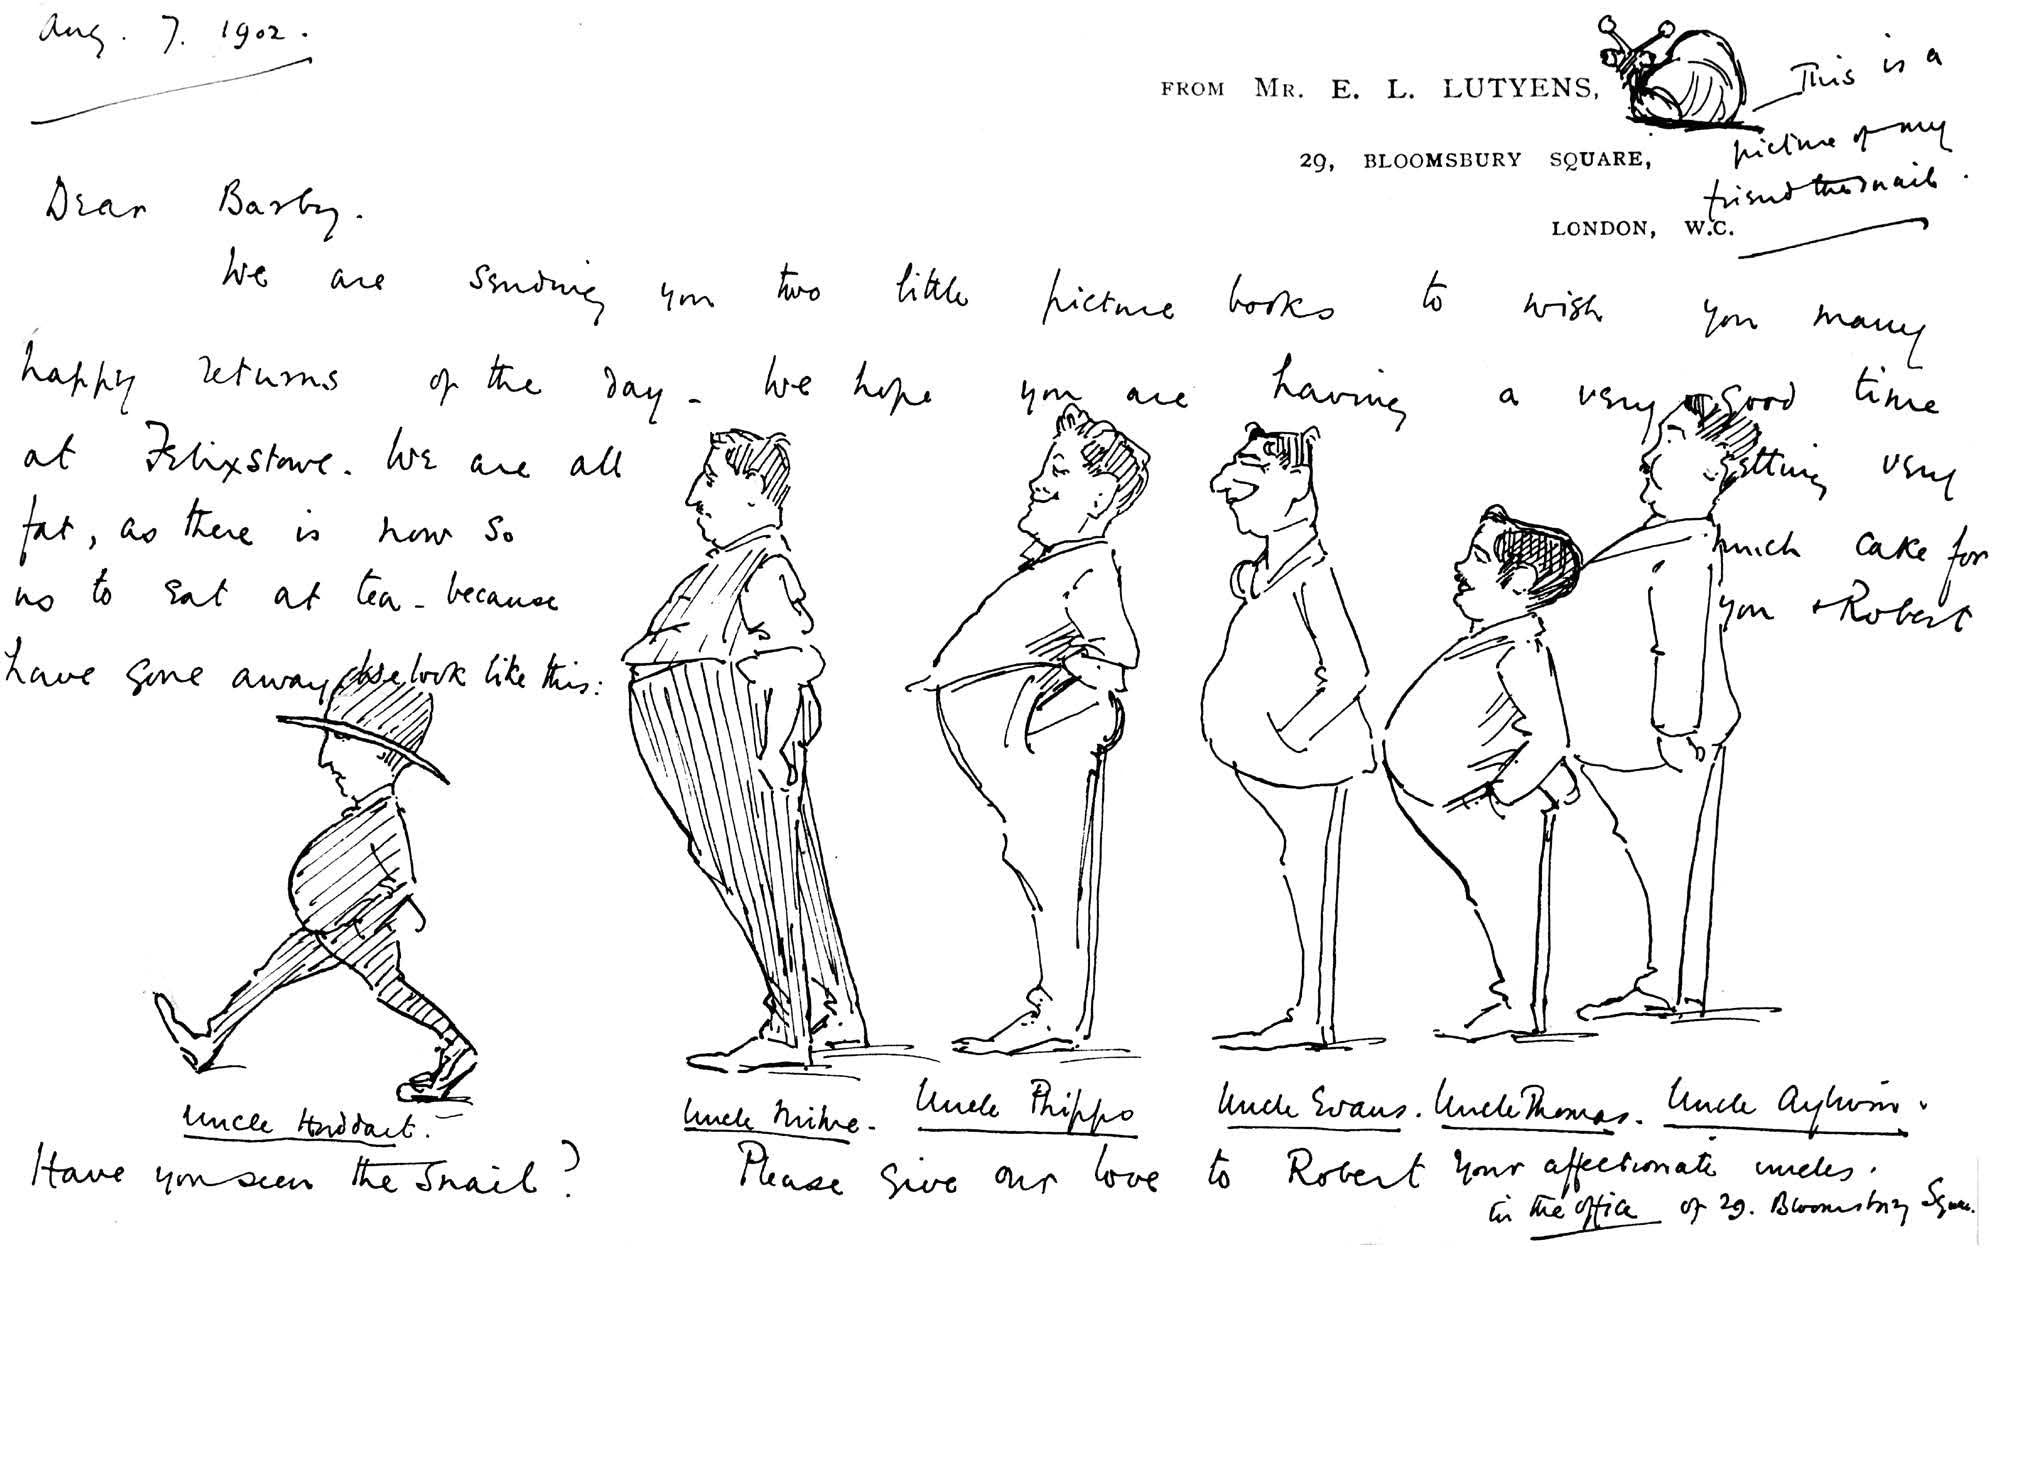 Aug. 7. 1902.
FROM MR. E. L. LUTYENS,
29, BLOOMSBURY SQUARE,
LONDON, W.C.
This is a
picture of my
friend the snail.
Dear Barby.
We are sending you two little picture books to wish you many
happy returns of the day - We hope you are having a very good time
at Felixstowe. We are all getting very
fat, as there is now so much cake for
us to eat at tea - because you & Robert
have gone away look like this:
Uncle Huddart.
Uncle Milne.
Uncle Phipps
Uncle Evans.
Uncle Thomas.
Uncle Aylwin.
Have you seen the Snail? Please give our love to Robert Your affectionate uncles.
in the office of 29. Bloomsbury Square.